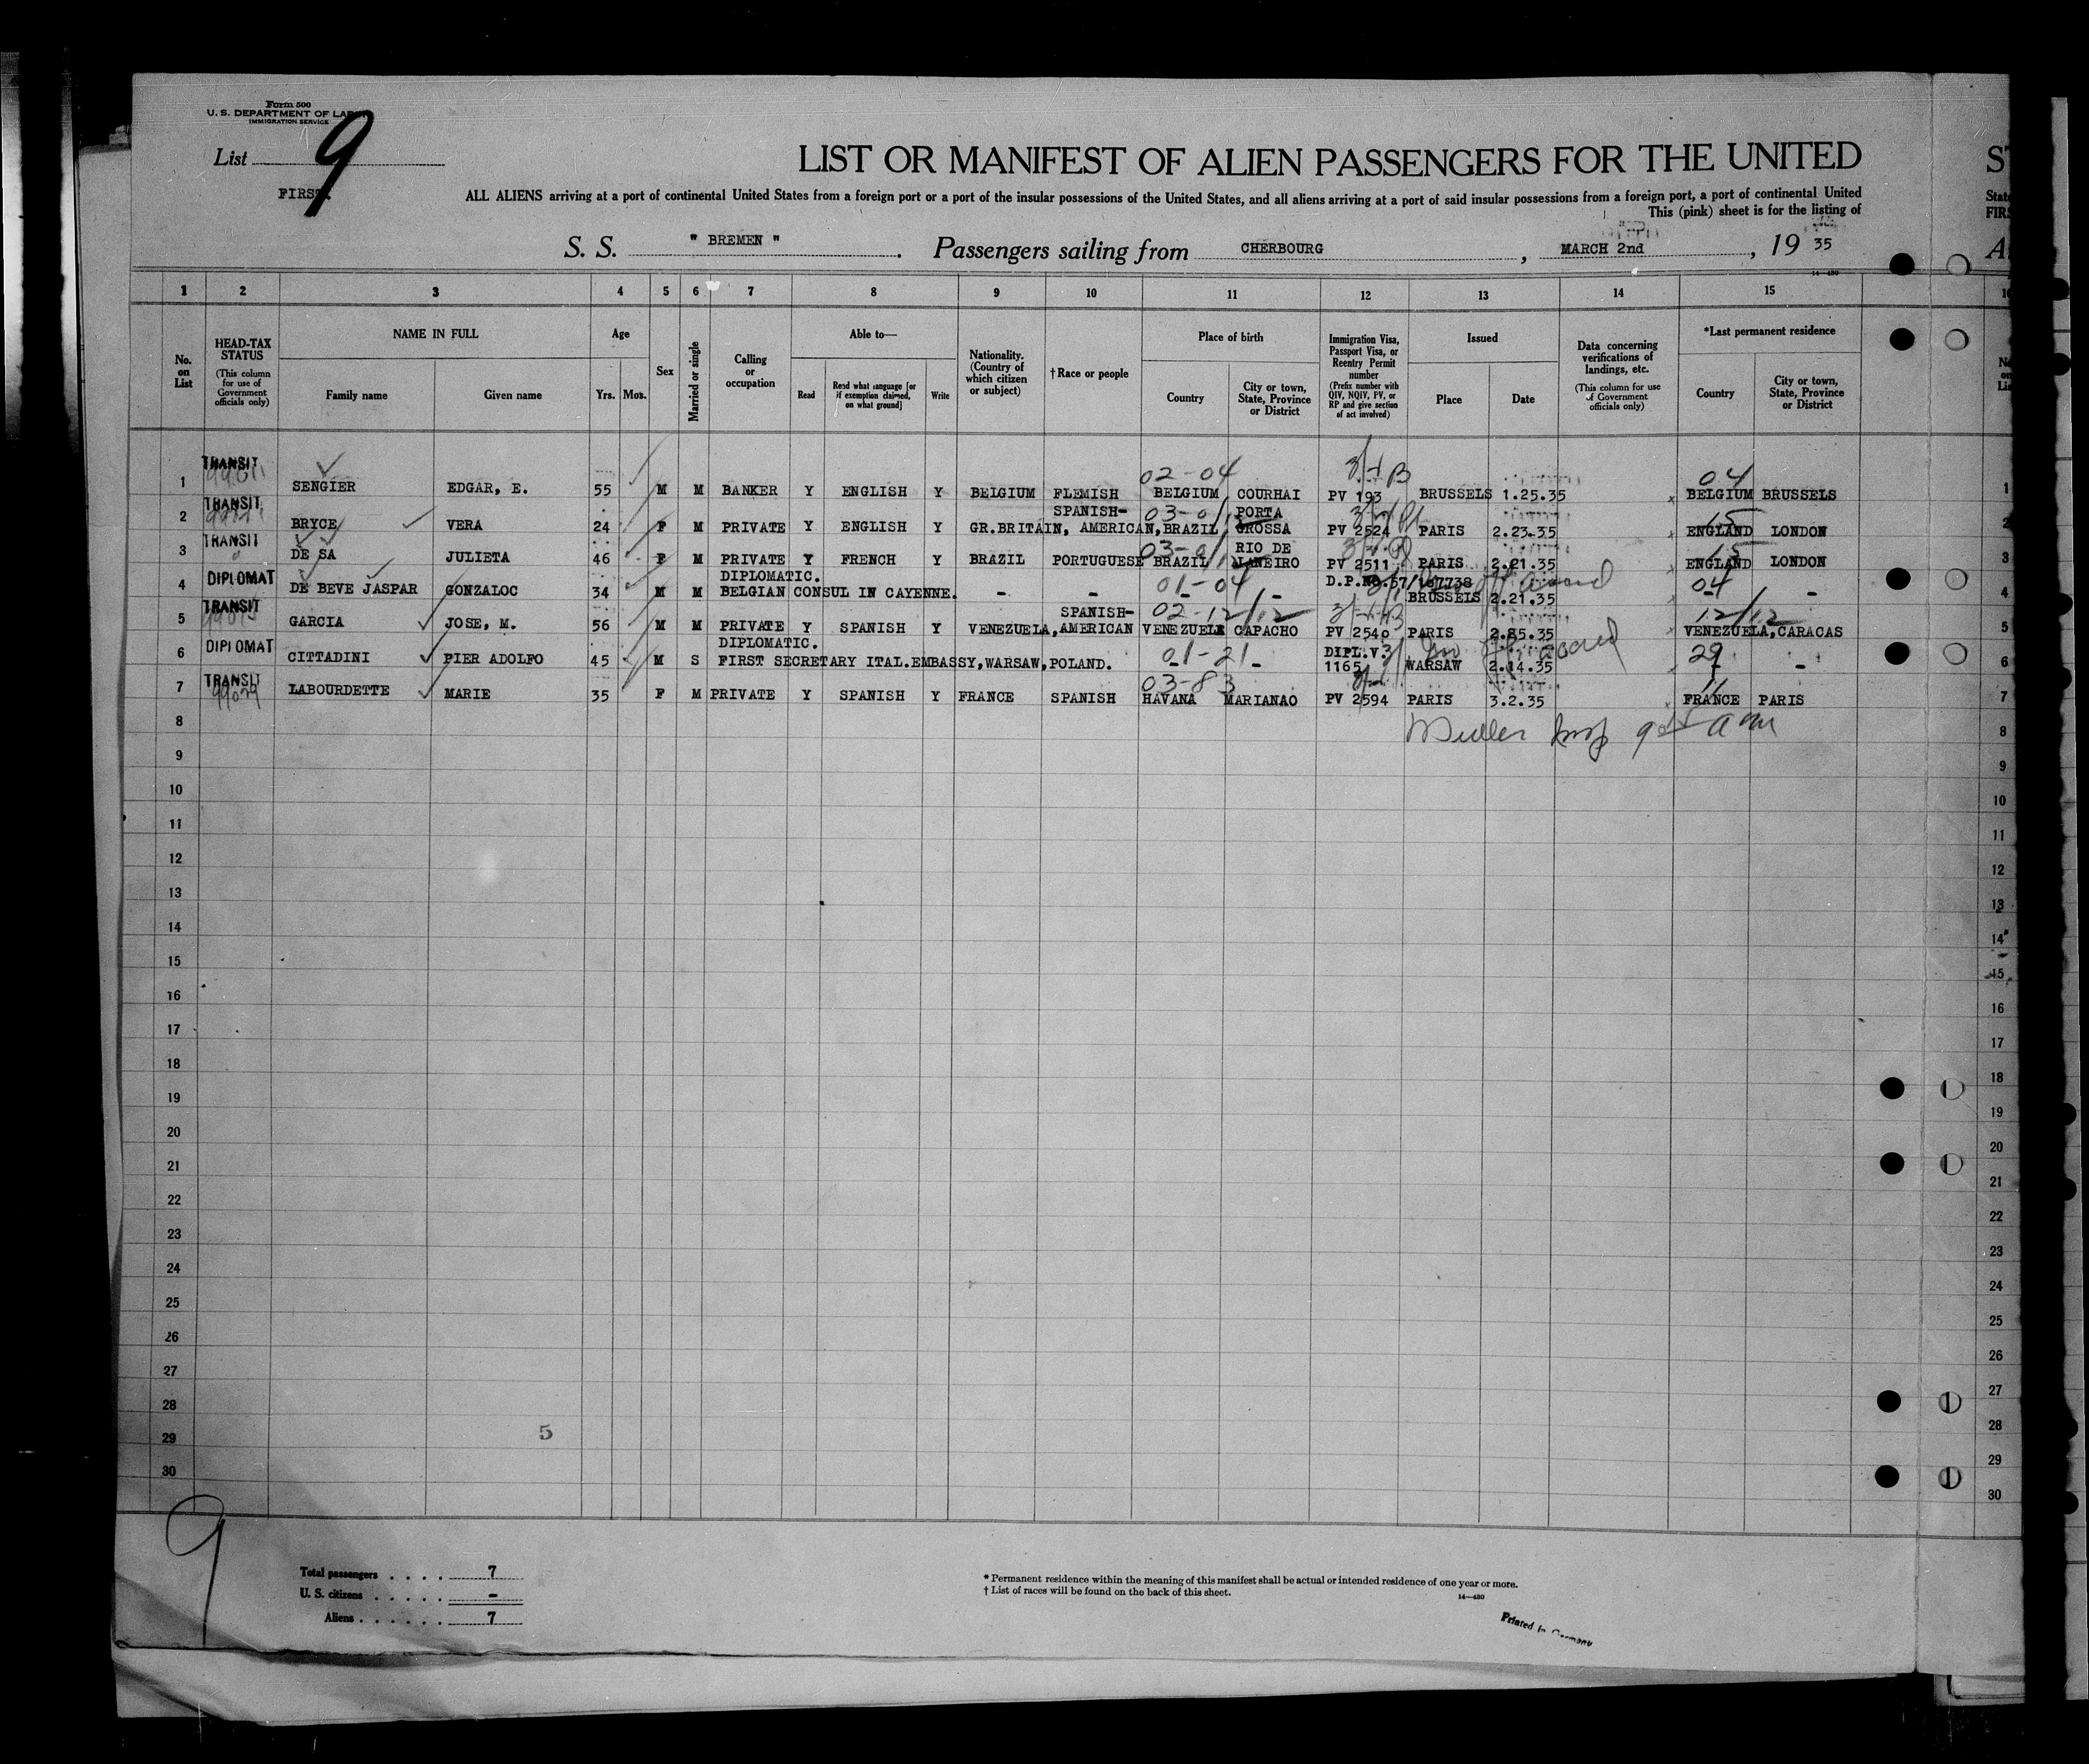 Form 500
U. S. DEPARTMENT OF LABOR
IMMIGRATION SERVICE
List 9
FIRST
LIST OR MANIFEST OF ALIEN PASSENGERS FOR THE UNITED
ALL ALIENS arriving at a port of continental United States from a foreign port or a port of the insular possessions of the United States, and all aliens arriving at a port of said insular possessions from a foreign port, a port of continental United
This (pink) sheet is for the listing of
S. S. " BREMEN ". Passengers sailing from CHERBOURG, MARCH 2nd, 19 35
14—430
1 2 3 4 5 6 7 8 9 10 11 12 13 14 15
No. on List
HEAD-TAX STATUS (This column for use of Government officials only)
NAME IN FULL
Family name
Given name
Age
Yrs. Mos.
Sex
Married or single
Calling or occupation
Able to—
Read
Read what language [or if exemption claimed, on what ground]
Write
Nationality. (Country of which citizen or subject)
†Race or people
Place of birth
Country
City or town, State, Province or District
Immigration Visa, Passport Visa, or Reentry Permit number (Prefix number with QIV, NQIV, PV, or RP and give section of act involved)
Issued
Place
Date
Data concerning verifications of landings, etc. (This column for use of Government officials only)
*Last permanent residence
Country
City or town, State, Province or District
TRANSIT 02-04 04
1 SENGIER EDGAR, E. 55 M M BANKER Y ENGLISH Y BELGIUM FLEMISH BELGIUM COURHAI PV 193 BRUSSELS 1.25.35 BELGIUM BRUSSELS 1
TRANSIT SPANISH- 03-01 PORTA 15
2 BRYCE VERA 24 F M PRIVATE Y ENGLISH Y GR.BRITAIN, AMERICAN, BRAZIL, GROSSA PV 2524 PARIS 2.23.35 ENGLAND LONDON 2
TRANSIT 03-01 RIO DE 15
3 DE SA JULIETA 46 F M PRIVATE Y FRENCH Y BRAZIL PORTUGUESE BRAZIL JANEIRO PV 2511 PARIS 2.21.35 ENGLAND LONDON 3
DIPLOMAT DIPLOMATIC. 01-04 D.P.No.57/167738 04
4 DE BEVE JASPAR GONZALOC 34 M M BELGIAN CONSUL IN CAYENNE. - - - - BRUSSELS 2.21.35 - - 4
TRANSIT SPANISH- 02-12/12 12/12
5 GARCIA JOSE, M. 56 M M PRIVATE Y SPANISH Y VENEZUELA, AMERICAN VENEZUELA CAPACHO PV 2540 PARIS 2.25.35 VENEZUELA, CARACAS 5
DIPLOMAT DIPLOMATIC. 01-21 DIPL.V. 29
6 CITTADINI PIER ADOLFO 45 M S FIRST SECRETARY ITAL.EMBASSY, WARSAW, POLAND. - - 1165 WARSAW 2.14.35 - - 6
TRANSIT 03-83 11
7 99079 LABOURDETTE MARIE 35 F M PRIVATE Y SPANISH Y FRANCE SPANISH HAVANA MARIANAO PV 2594 PARIS 3.2.35 FRANCE PARIS 7
8 8
9 9
10 10
11 11
12 12
13 13
14 14
15 15
16 16
17 17
18 18
19 19
20 20
21 21
22 22
23 23
24 24
25 25
26 26
27 27
28 28
29 29
30 30
5
9
Total passengers . . . . 7
U. S. citizens . . . . . -
Aliens . . . . . . 7
* Permanent residence within the meaning of this manifest shall be actual or intended residence of one year or more.
† List of races will be found on the back of this sheet.
14—430
Printed in Germany